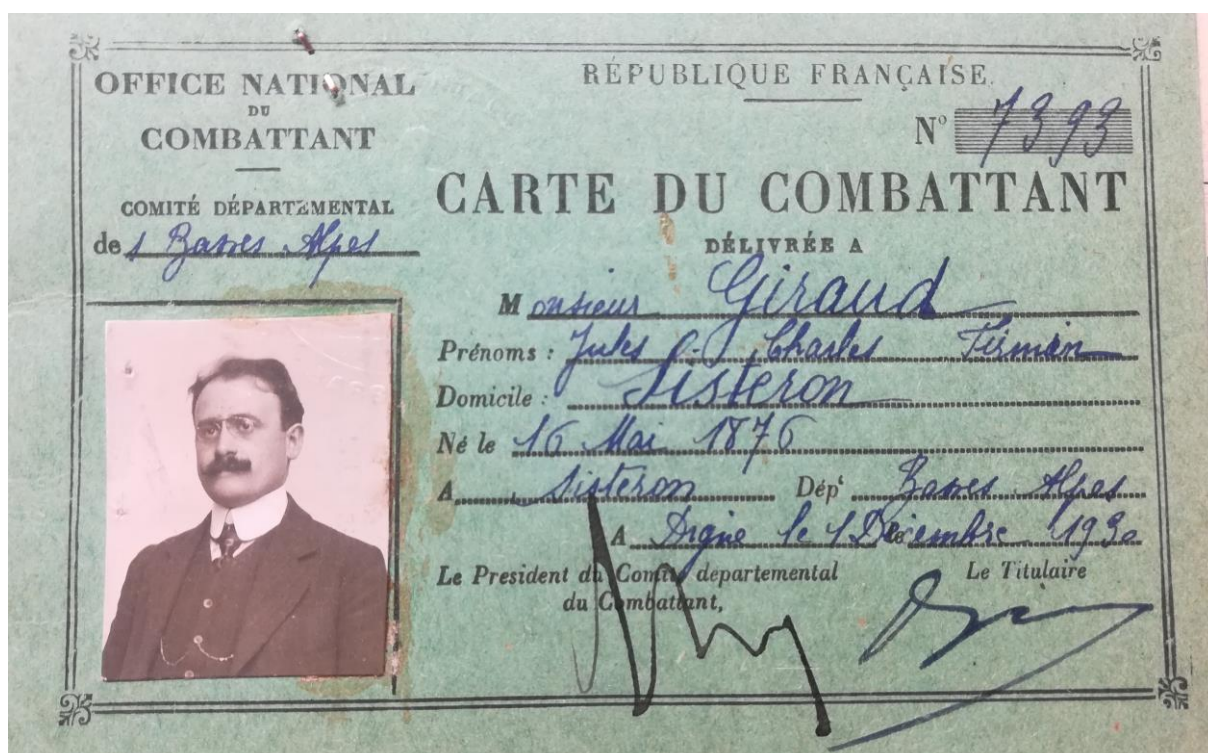 OFFICE NATIONAL
DU
COMBATTANT
COMITÉ DÉPARTEMENTAL
de s Basses Alpes
RÉPUBLIQUE FRANÇAISE.
N° 7393
CARTE DU COMBATTANT
DÉLIVRÉE A
Monsieur Giraud
Prénoms : Jules Charles Firmin
Domicile : Sisteron
Né le 16 Mai 1876
A Sisteron Dépt Basses Alpes
A Digne le 1 Décembre 1930
Le President du Comité departemental
du Combattant,
Le Titulaire